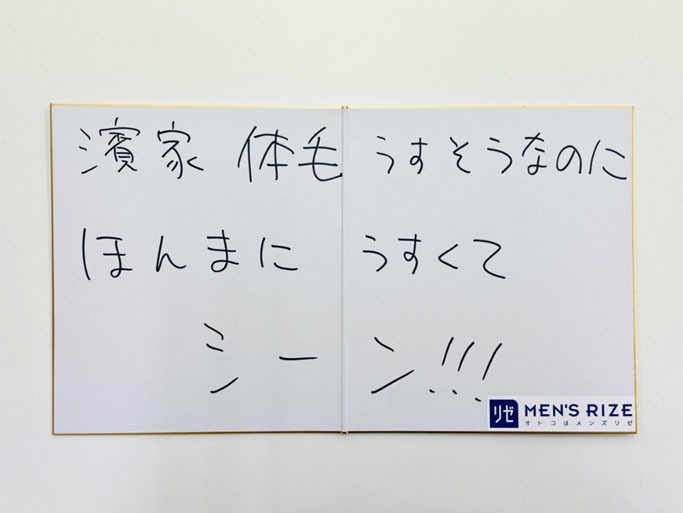 濱家 体毛 うすそうなのに
ほんまに うすくて
シーン!!!
リゼ MEN'S RIZE
オトコはメンズリゼ